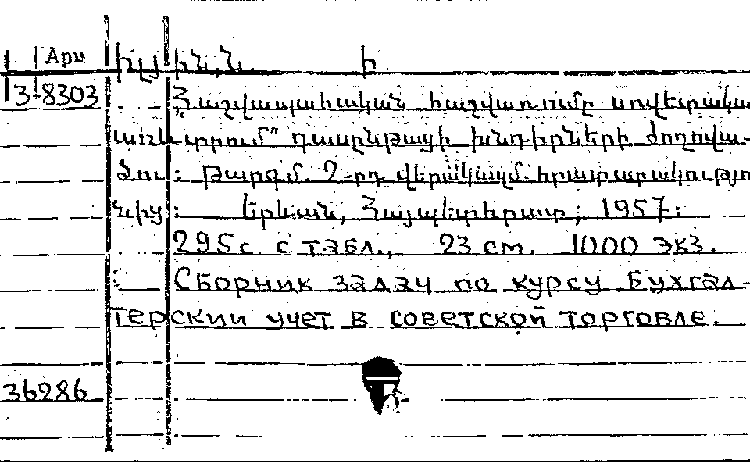 Арм
3-8303 Հաշվապահական հաշվառումը սովետական
առևտրում" դասընթացի խնդիրների ժողովա-
ծու: Թարգմ. 2-րդ վերակազմ. հրատարակությու
նից: Երևան, Հայպետհրատ, 1957:
295 с. с табл., 23 см. 1000 экз.
Сборник задач по курсу Бухгал-
терский учет в советской торговле.
36286